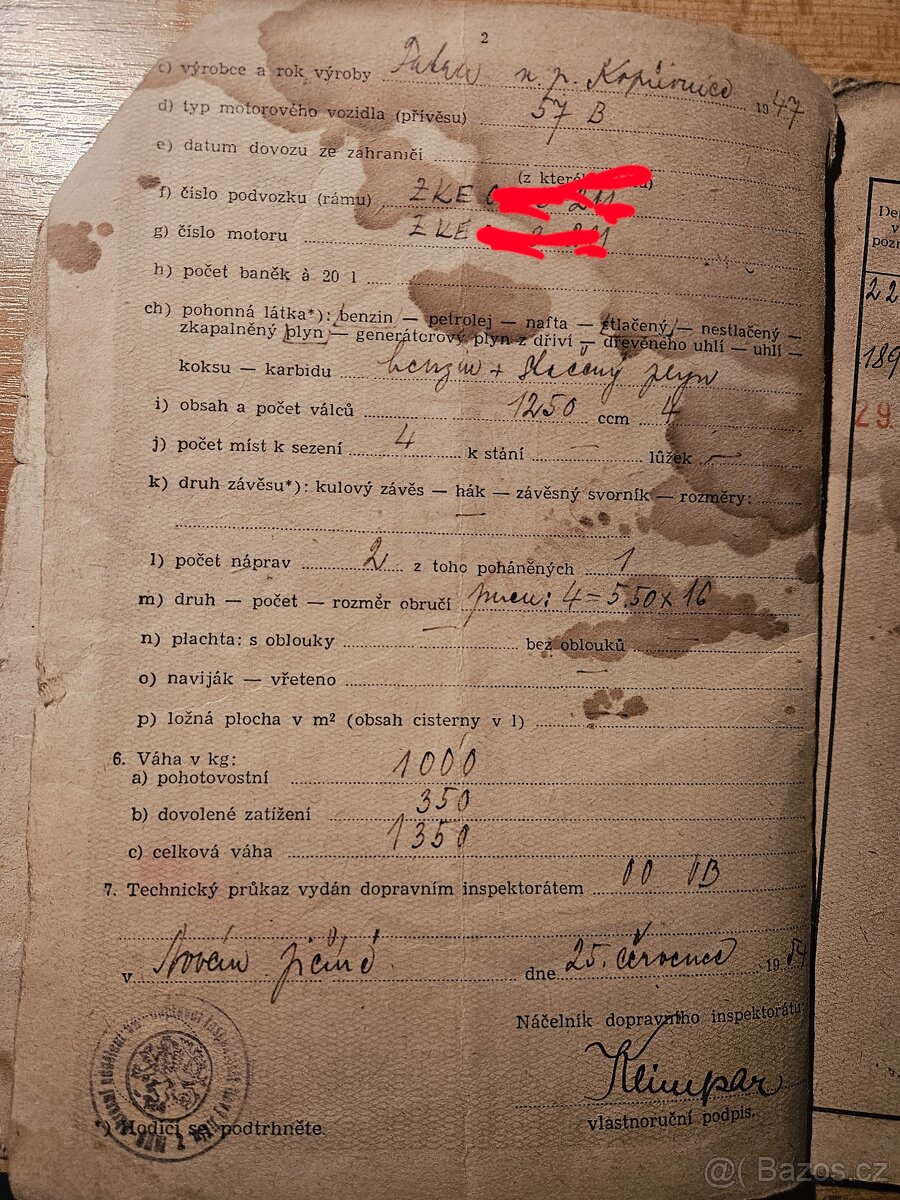 2
c) výrobce a rok výroby Tatra n. p. Kopřivnice 1947
d) typ motorového vozidla (přívěsu) 57 B
e) datum dovozu ze zahraničí
(z které
f) číslo podvozku (rámu) ŽKE
g) číslo motoru ŽKE
h) počet baněk à 20 l
ch) pohonná látka*): benzin — petrolej — nafta — stlačený — nestlačený —
zkapalněný plyn — generátorový plyn z dříví — dřevěného uhlí — uhlí —
koksu — karbidu benzin + stlačený plyn
i) obsah a počet válců 1250 ccm 4
j) počet míst k sezení 4 k stání — lůžek —
k) druh závěsu*): kulový závěs — hák — závěsný svorník — rozměry:
—
l) počet náprav 2 z toho poháněných 1
m) druh — počet — rozměr obručí pneu: 4 = 5.50 x 16
n) plachta: s oblouky — bez oblouků
o) naviják — vřeteno —
p) ložná plocha v m² (obsah cisterny v l) —
6. Váha v kg:
a) pohotovostní 1000
b) dovolené zatížení 350
c) celková váha 1350
7. Technický průkaz vydán dopravním inspektorátem OO VB
v Novém Jičíně dne 25. července 19
Náčelník dopravního inspektorátu:
Klimpar
vlastnoruční podpis.
*) Hodící se podtrhněte.
22
189
29.
@( Bazos.cz